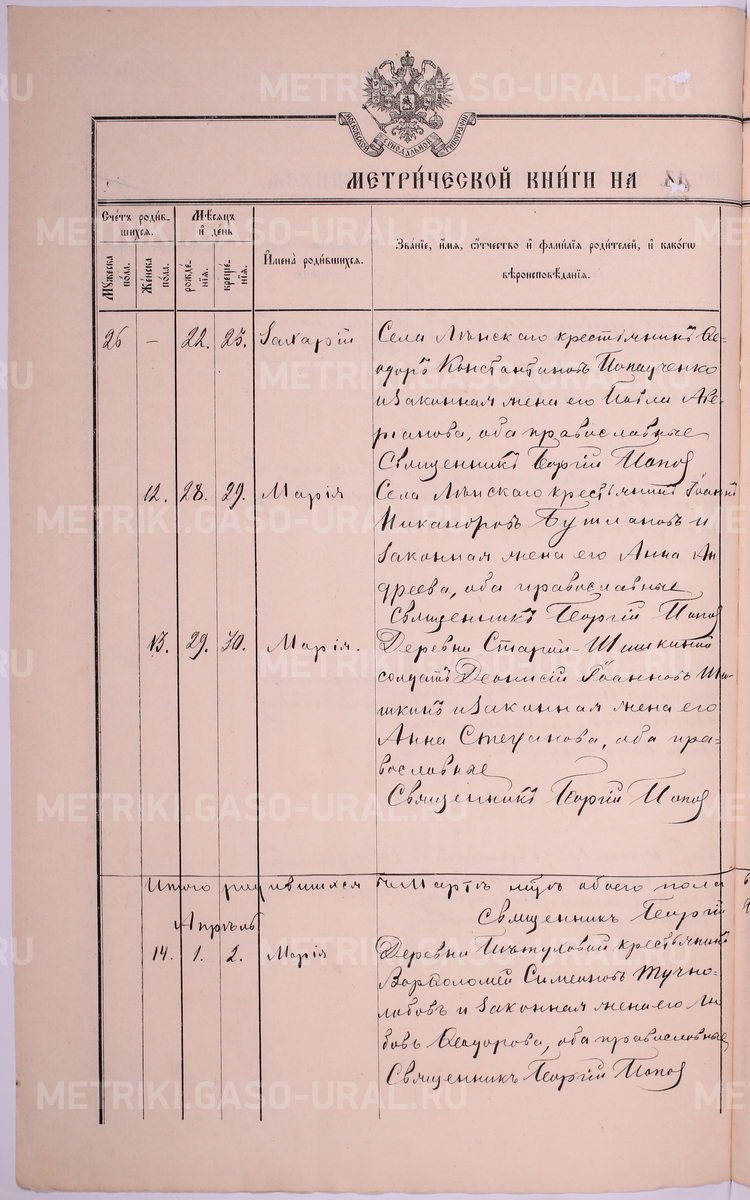 METRIKI.GASO-URAL.RU
МОСКОВСКОЙ СѴНОДАЛЬНОЙ ТИПОГРАФІИ
МЕТРИ́ЧЕСКОЙ КНИ́ГИ НА
Сче́тъ роди́в-
шихся.
Мѣсяцъ
и҆ де́нь
Мꙋ́жеска по́ла.
Же́нска по́ла.
рожде́-
нія.
креще́-
нія.
И҆мена̀ роди́вшихся.
Зва́ніе, и҆́мя, ѻ҆́тчество и҆ фами́лія роди́телей, и҆ како́гѡ
вѣроисповѣ́данія.
26 — 22. 23. Захарій
Села Лѣнскаго крестьянинъ Ѳе-
одоръ Константиновъ
и законная жена его Павла Аве-
ріанова, оба православные
Священникъ Георгій Попов
12. 28. 29. Марія
Села Лѣнскаго крестьянинъ Іоаннъ
Никаноровъ и
законная жена его Анна Ан
дреева, оба православные
Священникъ Георгій Попов
13. 29. 30. Марія.
Деревни Старой Шишкиной
солдатъ Деонисій Іоанновъ Ши-
шкинъ и законная жена его
Анна Стефанова, оба пра-
вославные
Священникъ Георгій Попов
Итого родившихся въ Мартѣ мцѣ обоего пола
Священникъ Георгій
Апрѣль
14. 1. 2. Марія
Деревни крестьянинъ
Варѳоломей Симеоновъ
и законная жена его Лю
бовь Ѳеодорова, оба православные
Священникъ Георгій Попов